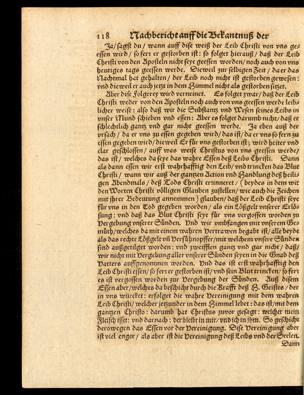 118 Nachbericht auff die Bekantnuß der
Ja/ sagst du/ wann auff dise weiß der Leib Christi von vns ge-
essen wird/ so fers er gestorben ist: so folget hierauß/ daß der Leib
Christi von den Aposteln nicht seye geessen worden/ noch auch von vns
heutiges tags geessen werde. Dieweil zur selbigen Zeit/ da er das
Nachtmal hat gehalten/ der Leib noch nicht ist gestorben gewesen:
vnd dieweil er auch jetzt in dem Himmel nicht als gestorben sitzet.
Aber dise Folgerey wird verneinet. Es folget zwar/ daß der Leib
Christi weder von den Aposteln noch auch von vns geessen werde leib-
licher weiß: also daß wir die Substantz vnd Wesen seines Leibs in
vnser Mund schieben vnd essen: Aber es folget darumb nicht/ daß er
schlechtlich gantz vnd gar nicht geessen werde. Ja eben auß der
vrsach/ da er vns zu essen gegeben wird/ das ist/ da er vns so fern zu
essen gegeben wird/ dieweil Er für vns gestorben ist; wird heiter vnd
clar geschlossen/ auff was weise Christus von vns geessen werde/
das ist/ welches da seye das wahre Essen deß Leibs Christi. Dann
als dann essen wir erst wahrhafftig den Leib/ vnd trincken das Blut
Christi/ wann wir auß der gantzen Action vnd Handlung deß heili-
gen Abendmals/ deß Tods Christi erinneret/ beydes in dem wir
den Worten Christi völligen Glauben zustellen/ wie auch die Zeichen
mit ihrer Bedeutung annemmen/ glauben/ daß der Leib Christi seye
für vns in den Tod gegeben worden/ als ein Lößgelt vnserer Erlö-
sung: vnd daß das Blut Christi seye für vns vergossen worden zu
Vergebung vnserer Sünden. Vnd wir vmbfangen mit vnserem Ge-
müth/ welches da mit einem wahren Vertrawen begabt ist/ alle beyde
als das rechte Lößgelt vnd Versühnopffer/ mit welchem vnsere Sünden
sind außgetilget worden: vnd zweifflen gantz vnd gar nicht/ daß
wir nicht mit Vergebung aller vnserer Sünden seyen in die Gnad deß
Vatters auffgenommen worden. Vnd das ist erst wahrhafftig den
Leib Christi essen/ so fers er gestorben ist/ vnd sein Blut trincken/ so fers
es ist vergossen worden zur Vergebung der Sünden. Auß disem
Essen aber/ welches da beschihet durch die Krafft deß H. Geistes/ der
in vns würcket: erfolget die wahre Vereinigung mit dem wahren
Leib Christi/ welcher jetzunder in dem Himmel lebet: das ist/ mit dem
gantzen Christo: darumb hat Christus zuvor gesagt: welcher mein
Fleisch isset: vnd darnach: der bleibt in mir/ vnd ich in ihm. So geschicht
derowegen das Essen vor der Vereinigung. Dise Vereinigung aber
ist viel enger/ als aber ist die Vereinigung deß Leibs vnd der Seelen.
Dann